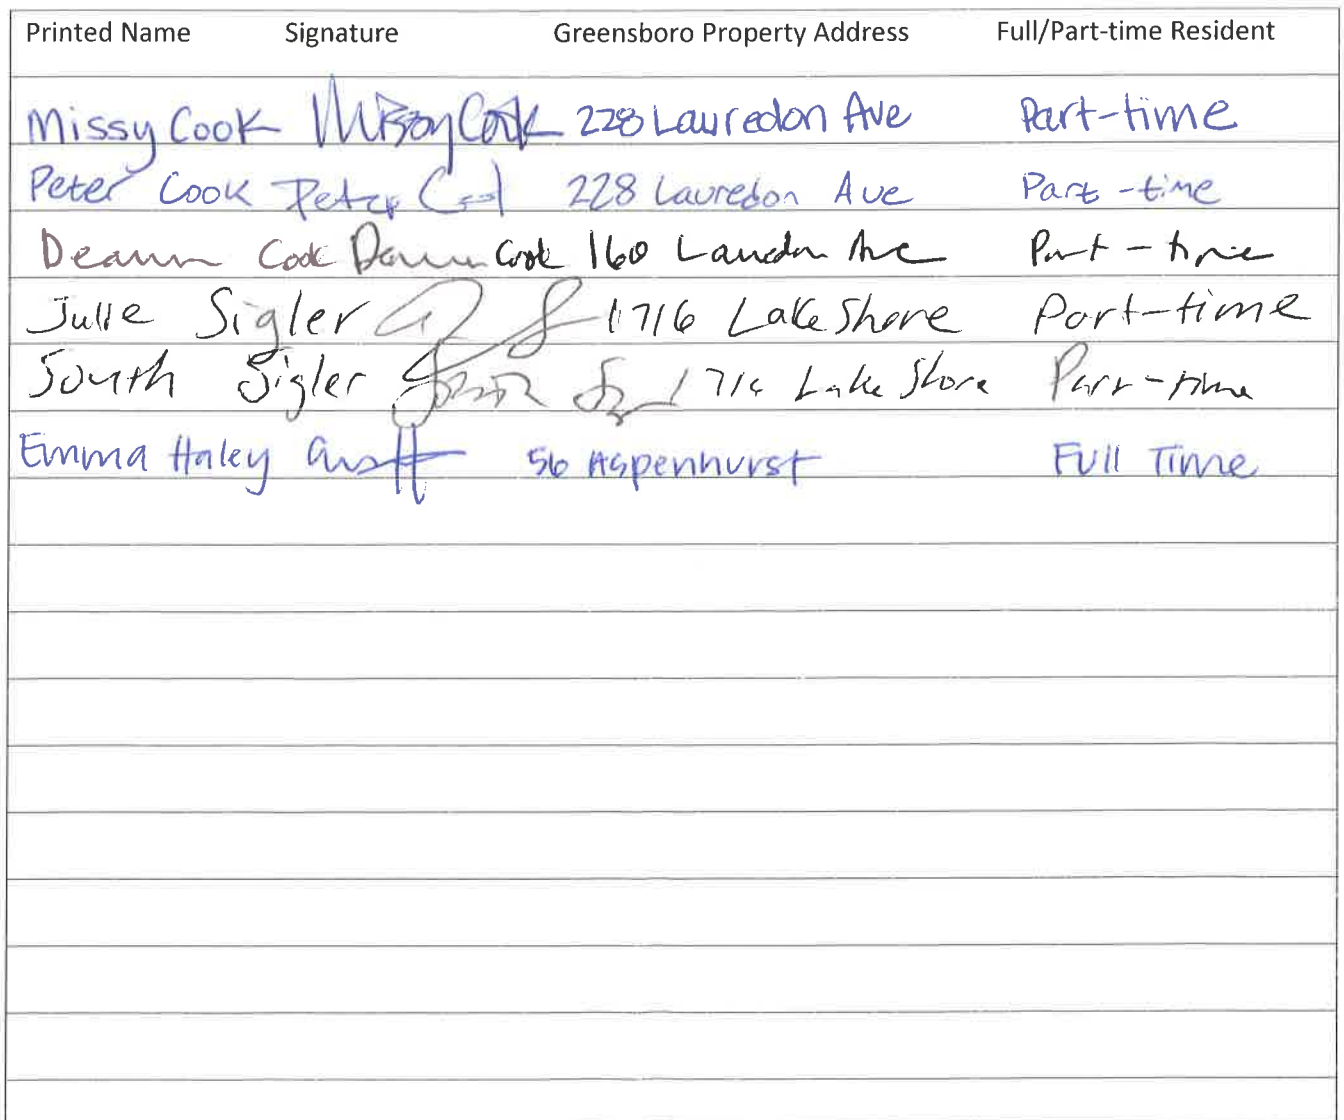 Printed Name Signature Greensboro Property Address Full/Part-time Resident
Missy Cook Missy Cook 228 Lauredon Ave Part-time
Peter Cook Peter Cook 228 Lauredon Ave Part-time
Deann Cook Cook 160 Ave Part-time
Julie Sigler 1716 Lake Shore Part-time
Sigler 1716 Lake Shore Part-time
Emma Haley 56 Aspenhurst Full Time